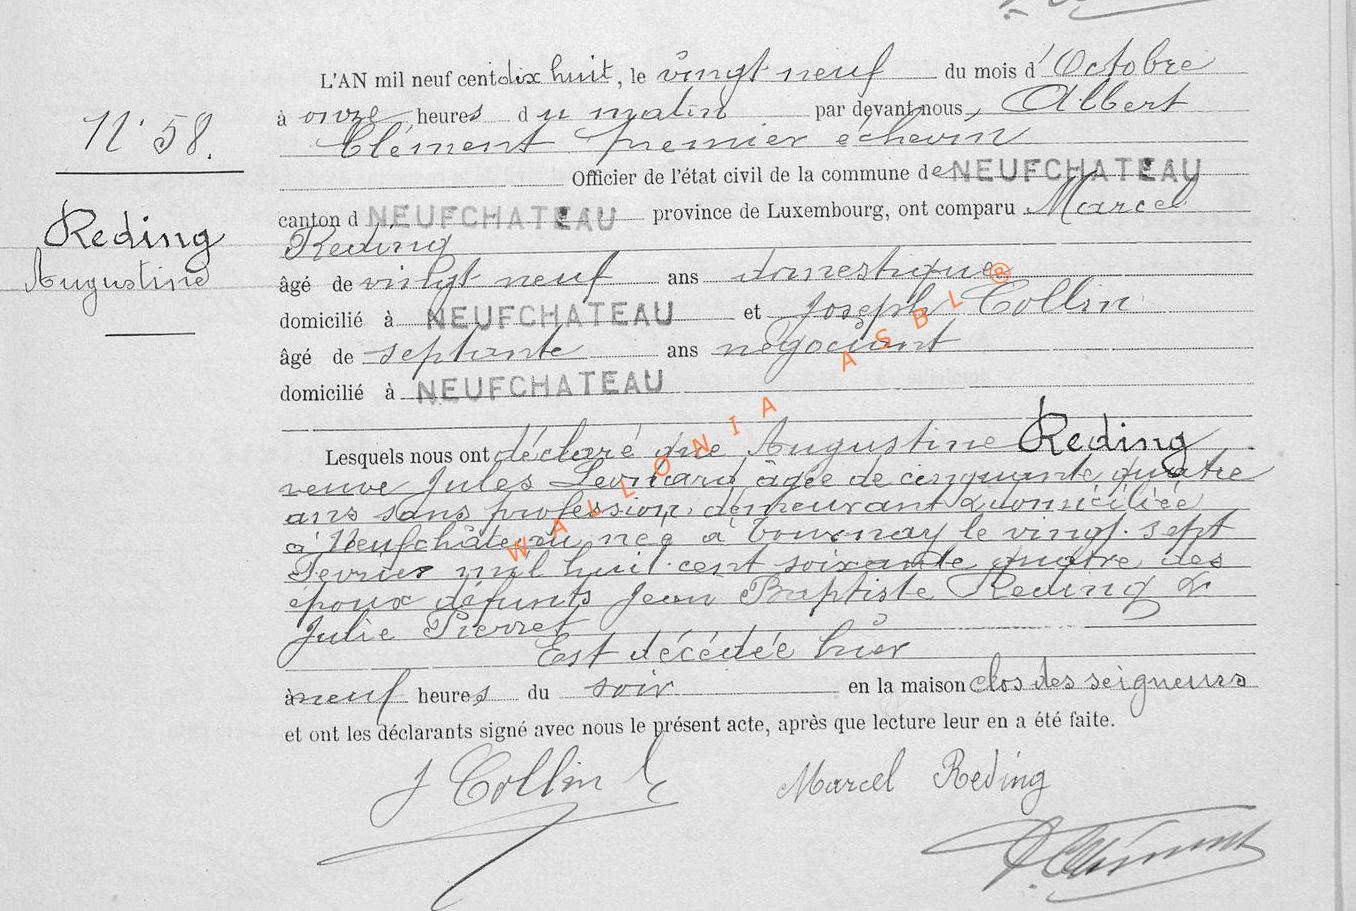 L'AN mil neuf cent dix huit, le vingt neuf du mois d'Octobre
à onze heures du matin par devant nous, Albert
Clément premier échevin
Officier de l'état civil de la commune de NEUFCHATEAU
canton d NEUFCHATEAU province de Luxembourg, ont comparu Marcel
Reding
âgé de vingt neuf ans domestique
domicilié à NEUFCHATEAU et Joseph Collin
âgé de septante ans négociant
domicilié à NEUFCHATEAU
Lesquels nous ont déclaré que Augustine Reding
veuve Jules Leonard, âgée de cinquante quatre
ans sans profession, demeurant & domiciliée
à Neufchâteau, née à Tournay le vingt-sept
Février mil huit-cent soixante quatre des
époux défunts Jean Baptiste Reding &
Julie Pierret
Est décédée hier
à neuf heures du soir en la maison clos des seigneurs
et ont les déclarants signé avec nous le présent acte, après que lecture leur en a été faite.
N° 58.
Reding
Augustine
J Collin
Marcel Reding
A. Clément
WALLONIA ASBL ®